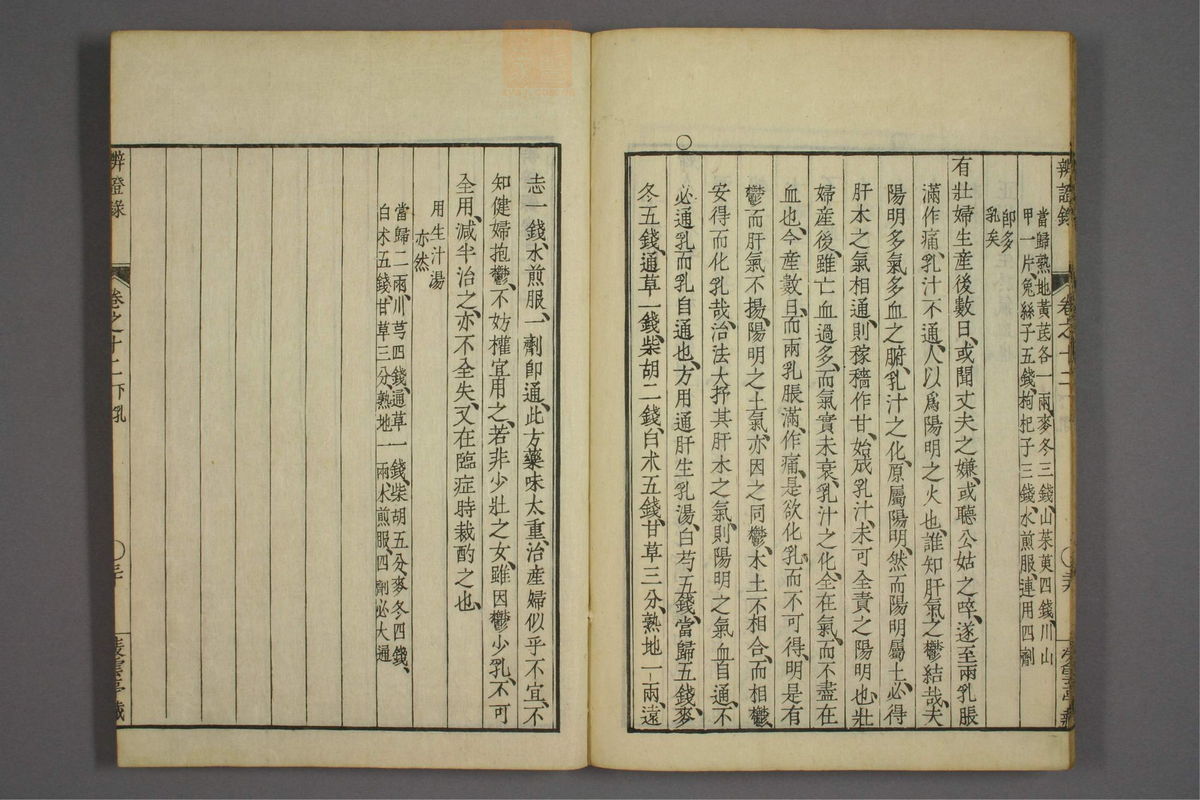 辨證錄
卷之十二
當歸熟地黃芪各一兩麥冬三錢山茱萸四錢川山
甲一片兔絲子五錢枸杞子三錢水煎服連用四劑
即多
乳矣
有壯婦生産後數日或聞丈夫之嫌或聽公姑之啐遂至兩乳脹
滿作痛乳汁不通人以爲陽明之火也誰知肝氣之鬱結哉夫
陽明多氣多血之腑乳汁之化原屬陽明然而陽明屬土必得
肝木之氣相通則稼穡作甘始成乳汁未可全責之陽明也壯
婦産後雖亡血過多而氣實未衰乳汁之化全在氣而不盡在
血也今産數日而兩乳脹滿作痛是欲化乳而不可得明是有
鬱而肝氣不揚陽明之土氣亦因之同鬱木土不相合而相鬱
安得而化乳哉治法大抒其肝木之氣則陽明之氣血自通不
必通乳而乳自通也方用通肝生乳湯白芍五錢當歸五錢麥
冬五錢通草一錢柴胡二錢白朮五錢甘草三分熟地一兩遠
志一錢水煎服一劑即通此方藥味太重治産婦似乎不宜不
知健婦抱鬱不妨權宜用之若非少壯之女雖因鬱少乳不可
全用減半治之亦不全失又在臨症時裁酌之也
用生汁湯
亦然
當歸二兩川芎四錢通草一錢柴胡五分麥冬四錢
白朮五錢甘草三分熟地一兩水煎服四劑必大通
辨證錄
卷之十二下乳